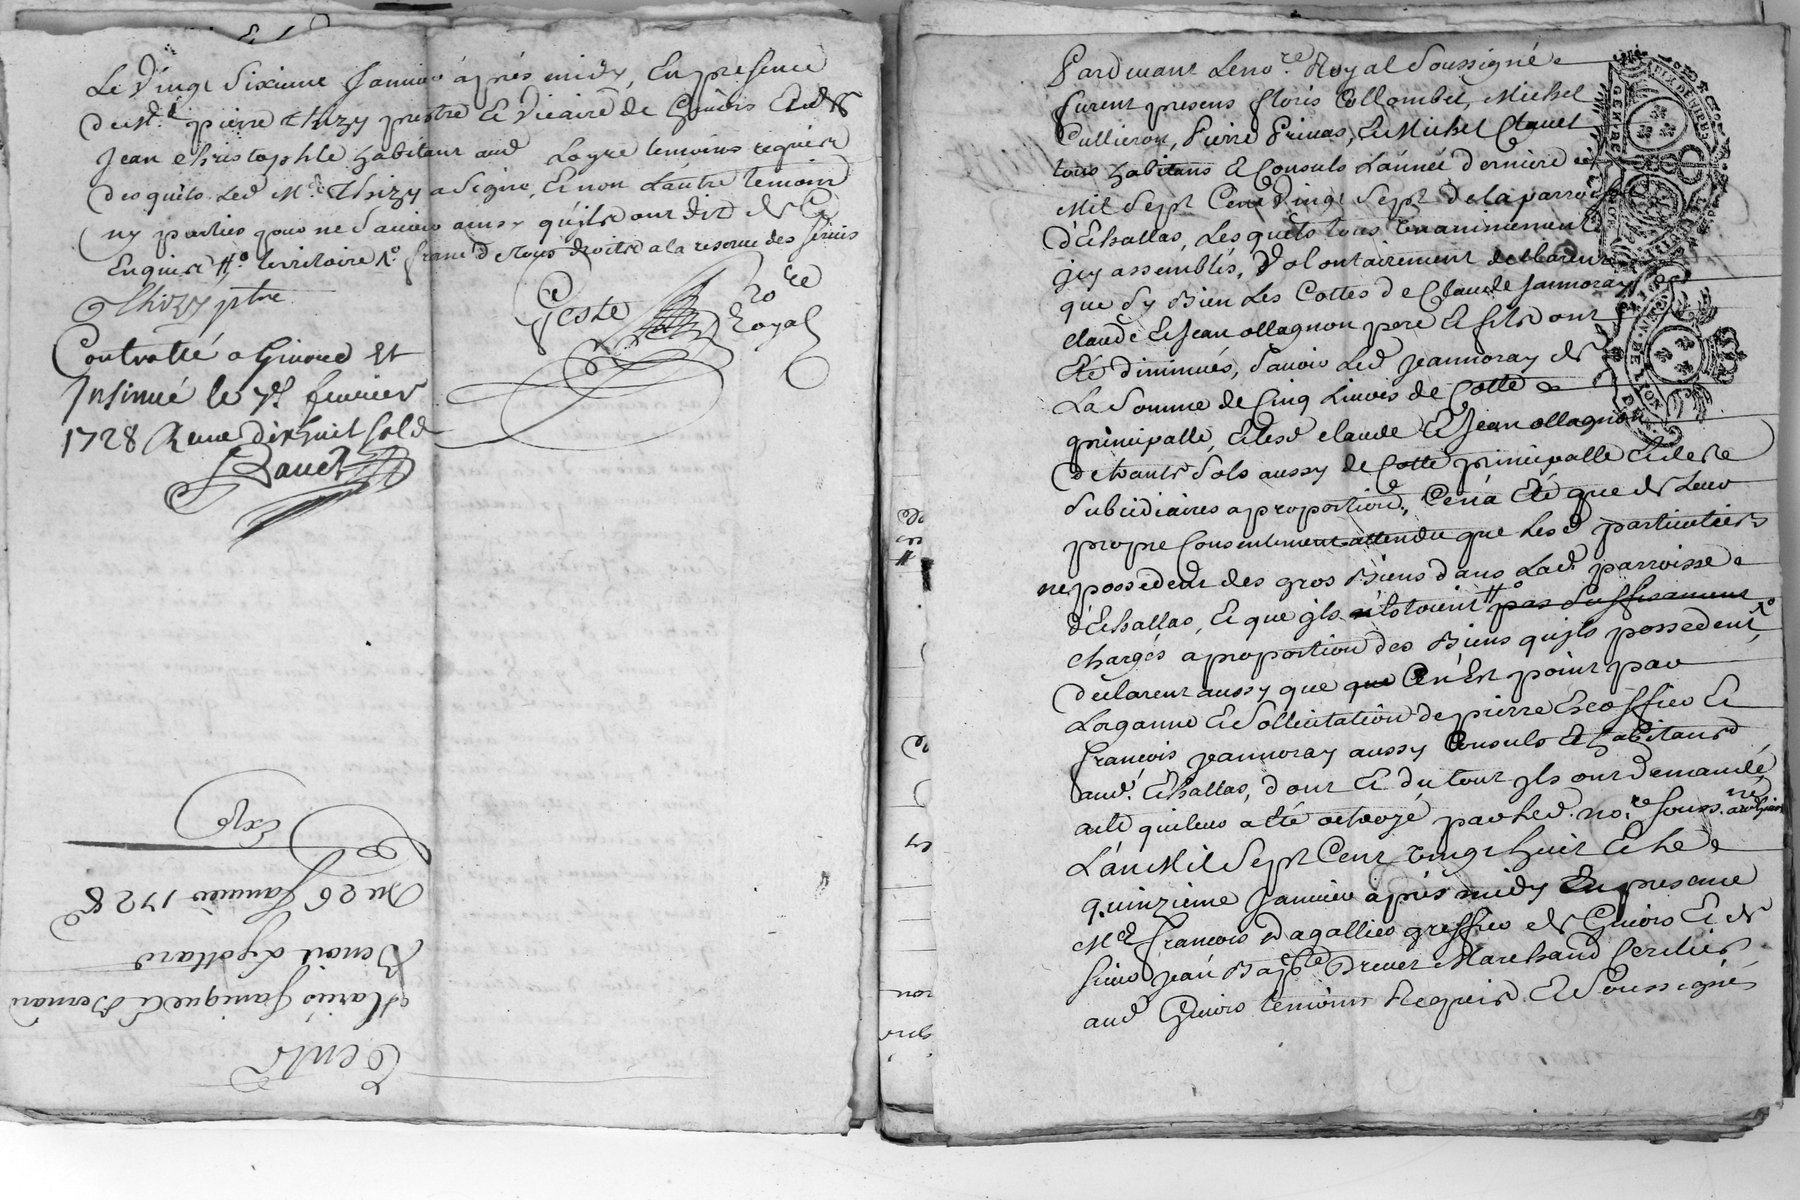 Le Vingt Sixieme Janvier áprés midy, En presence
de Mre. pierre thizy prestre Et Vicaire de Givors Et de Sr
Jean christophle habitant aud Loyre temoins requis
desquels Led Mre. Thizy a signé, Et non Lautre temoin
ny parties pour ne Savoir ainsy qu'ils ont dit de Ce
Enquis
territoire
franc de tous droits a la reserve des servis
Thizy ptre
Geste
no re
Royal
Controllé a Givord Et
Insinué le 7e. fevrier
1728 Receu dixhuit sols
Expé
Du 26 Janvier 1728
Benoit
Vente
Pardevant Leno.re Royal Soussigné
furent presens floris Collombet, Michel
Cullieron, Pierre Privas, Et Michel Clauet
tous habitans Et Consuls L'année derniere
Mil Sept Cent Vingt Sept de la parroisse
d'Echallas, Lesquels tous Unanimement
jcy assemblés, Volontairement declarent
que Sy Bien Les Cottes de Claude Jannoray
claude Et Jean ollagnon pere Et fils ont
Eté diminués, Savoir Led Jeannoray de
La Somme de Cinq Livres de Cotte
principalle, Et lesd claude Et Jean ollagnon
de trante Sols aussy de Cotte principalle Et de
Subcidiaires a proportion, Cen'a Eté que de Leur
propre Consentement attendu que Lesd particuliers
ne possedent des gros Biens dans Lad. parroisse
d'Echallas, Et que jls n'Estoient pas suffisament
chargés a proportion des Biens qu'jls possedent
declarent aussy que que Cen'Est point par
Lorganne Et Sollicitation de pierre Escoffier Et
françois Jeannoray aussy Consuls Et habitans
aud. Echallas, dont Et du tout jls ont demandé
acte qui leur a Eté octroyé par Led. no.re souss.
L'an Mil Sept Cent Vingt huit Et Le
quinzieme Janvier áprés midy En presence
Me françois Dagallier greffier de Givors Et de
Sieur Jean Bapte Drevet Marchand
aud Givors temoins Requis Et Soussignés
GENERALE
DE LYON